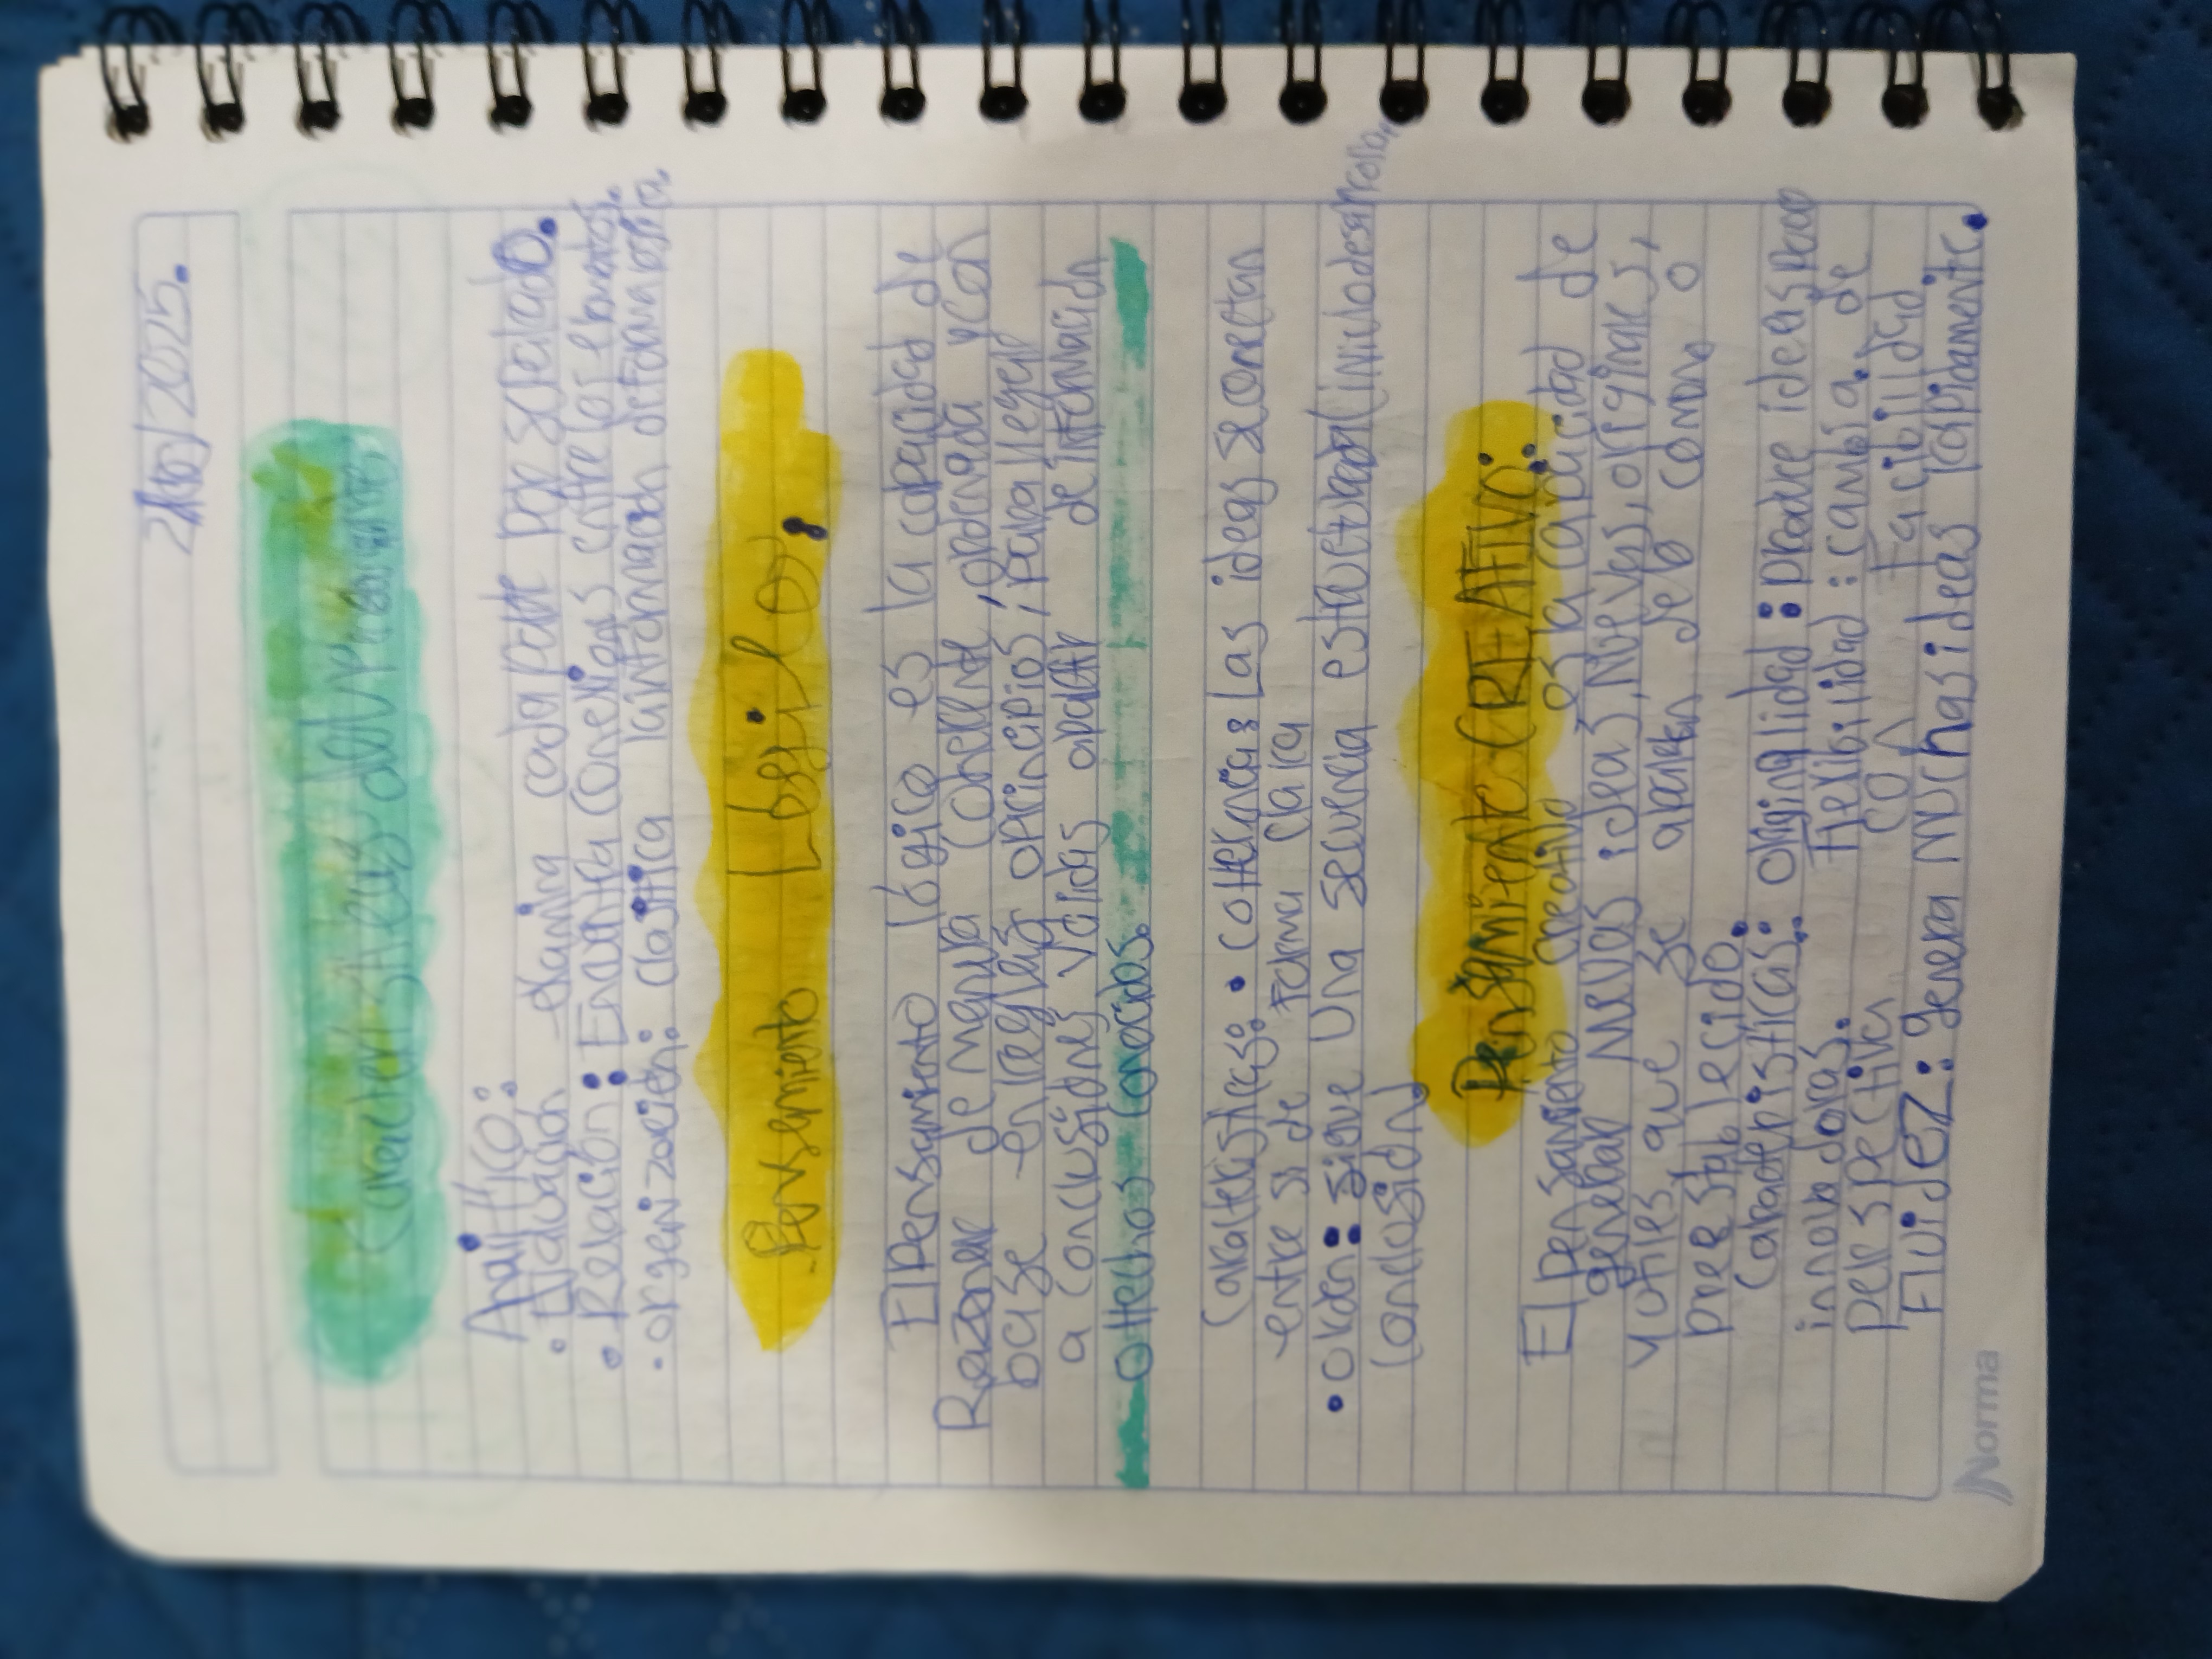 /2025.
Caracteristicas del pensamiento
Analítico:
• Evaluación examina cada parte por separado.
• Relación: Encuentra conexiones entre los elementos.
• organización: clasifica la información de forma lógica.
Pensamiento Lógico:
El pensamiento lógico es la capacidad de
Razonar de manera coherente, ordenada y con
base en reglas o principios, para llegar
a conclusiones validas apartir de información
o Hechos conocidos.
Características: • coherencias Las ideas se conectan
entre si de forma clara
• orden: sigue una secuencia estructurada (inicio desarrollo,
conclusión)
Pensamiento CREATIVO:
El pensamiento creativo es la capacidad de
generar nuevas ideas, Nuevas, originales,
y utiles que se alejen de lo comun o
preestablecido.
Características: originalidad: produce ideas poco
innovadoras. Flexibilidad: cambia de
perspectiva con facilidad
Fluidez: genera muchas ideas rapidamente.
Norma